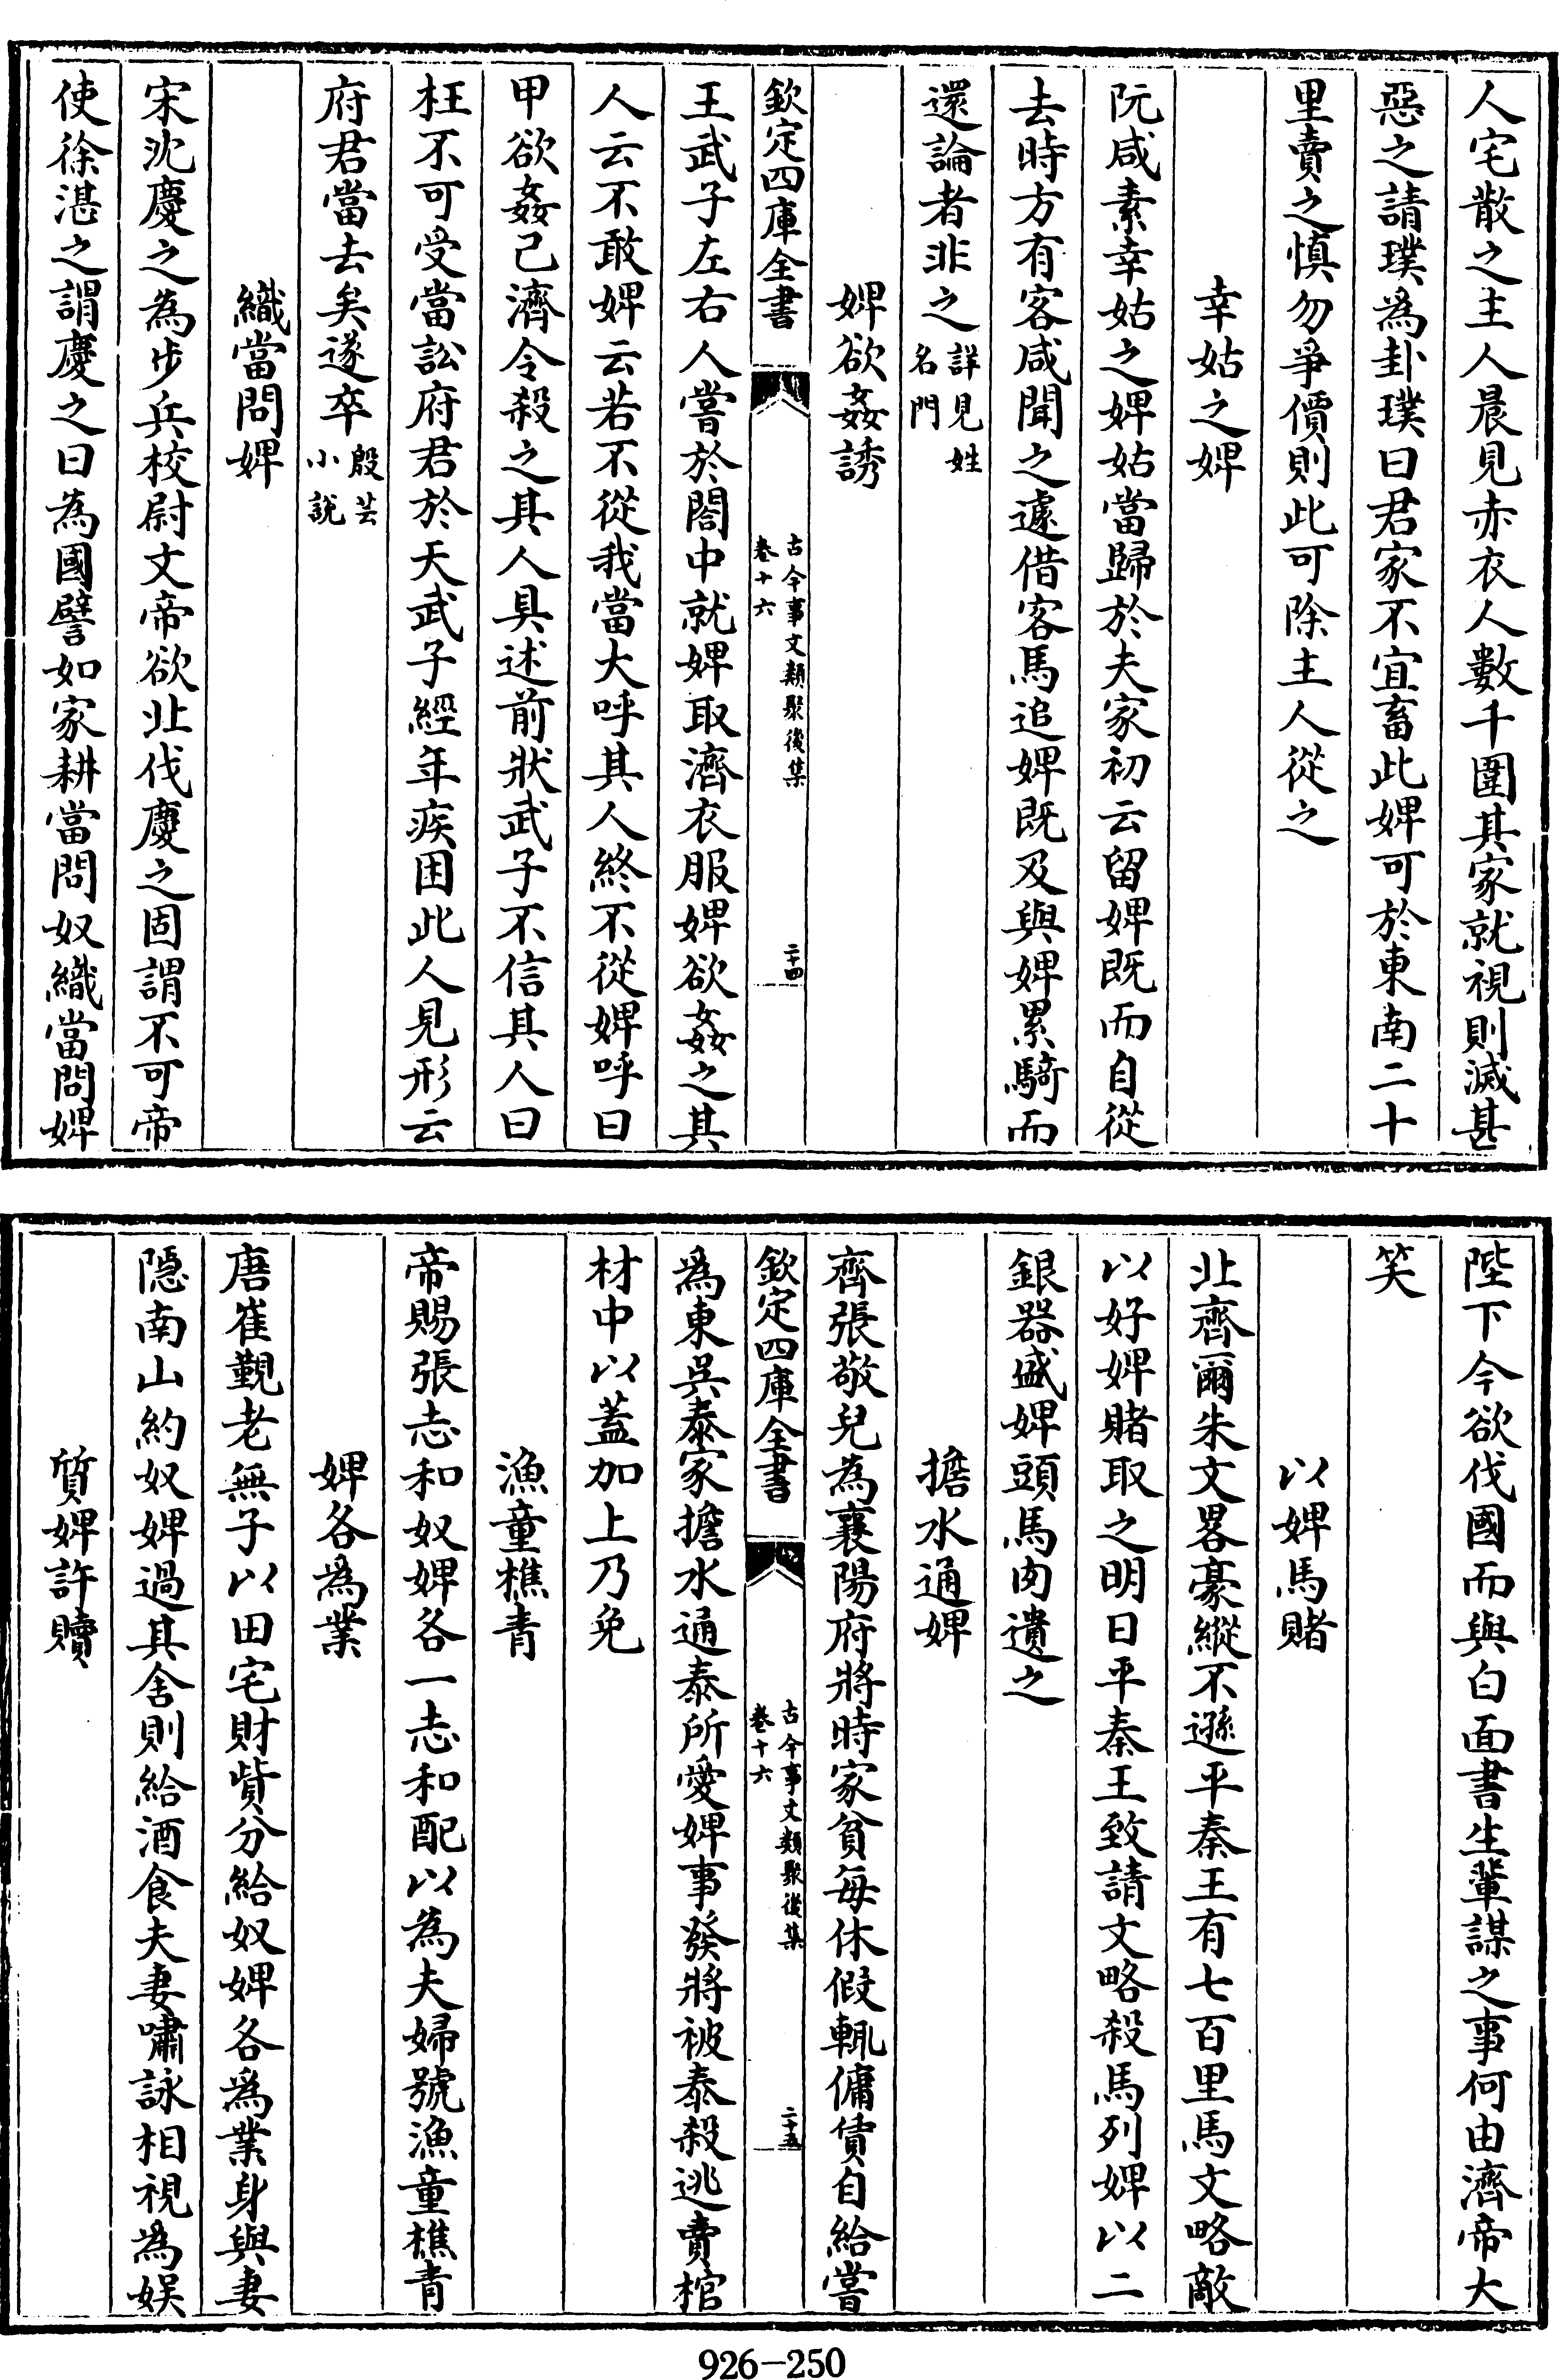 人宅散之主人晨見赤衣人數千圍其家就視則滅甚
惡之請璞為卦璞曰君家不宜畜此婢可於東南二十
里賣之慎勿爭價則此可除主人從之
幸姑之婢
阮咸素幸姑之婢姑當歸於夫家初云留婢既而自從
去時方有客咸聞之遽借客馬追婢既及與婢累騎而
還論者非之詳見姓名門
婢欲姦誘
欽定四庫全書
古今事文類聚後集
卷十六
二十四
王武子左右人嘗於閤中就婢取濟衣服婢欲姦之其
人云不敢婢云若不從我當大呼其人終不從婢呼曰
甲欲姦己濟令殺之其人具述前狀武子不信其人曰
枉不可受當訟府君於天武子經年疾困此人見形云
府君當去矣遂卒殷芸小說
織當問婢
宋沈慶之為步兵校尉文帝欲北伐慶之固謂不可帝
使徐湛之謂慶之曰為國譬如家耕當問奴織當問婢
陛下今欲伐國而與白面書生輩謀之事何由濟帝大
笑
以婢馬賭
北齊爾朱文畧豪縱不遜平秦王有七百里馬文略敵
以好婢賭取之明日平秦王致請文略殺馬列婢以二
銀器盛婢頭馬肉遺之
擔水通婢
齊張敬兒為襄陽府將時家貧每休假輒傭賃自給嘗
欽定四庫全書
古今事文類聚後集
卷十六
二十五
為東吳泰家擔水通泰所愛婢事發將被泰殺逃賣棺
材中以蓋加上乃免
漁童樵青
帝賜張志和奴婢各一志和配以為夫婦號漁童樵青
婢各為業
唐崔覲老無子以田宅財貲分給奴婢各為業身與妻
隱南山約奴婢過其舍則給酒食夫妻嘯詠相視為娱
質婢許贖
926-250